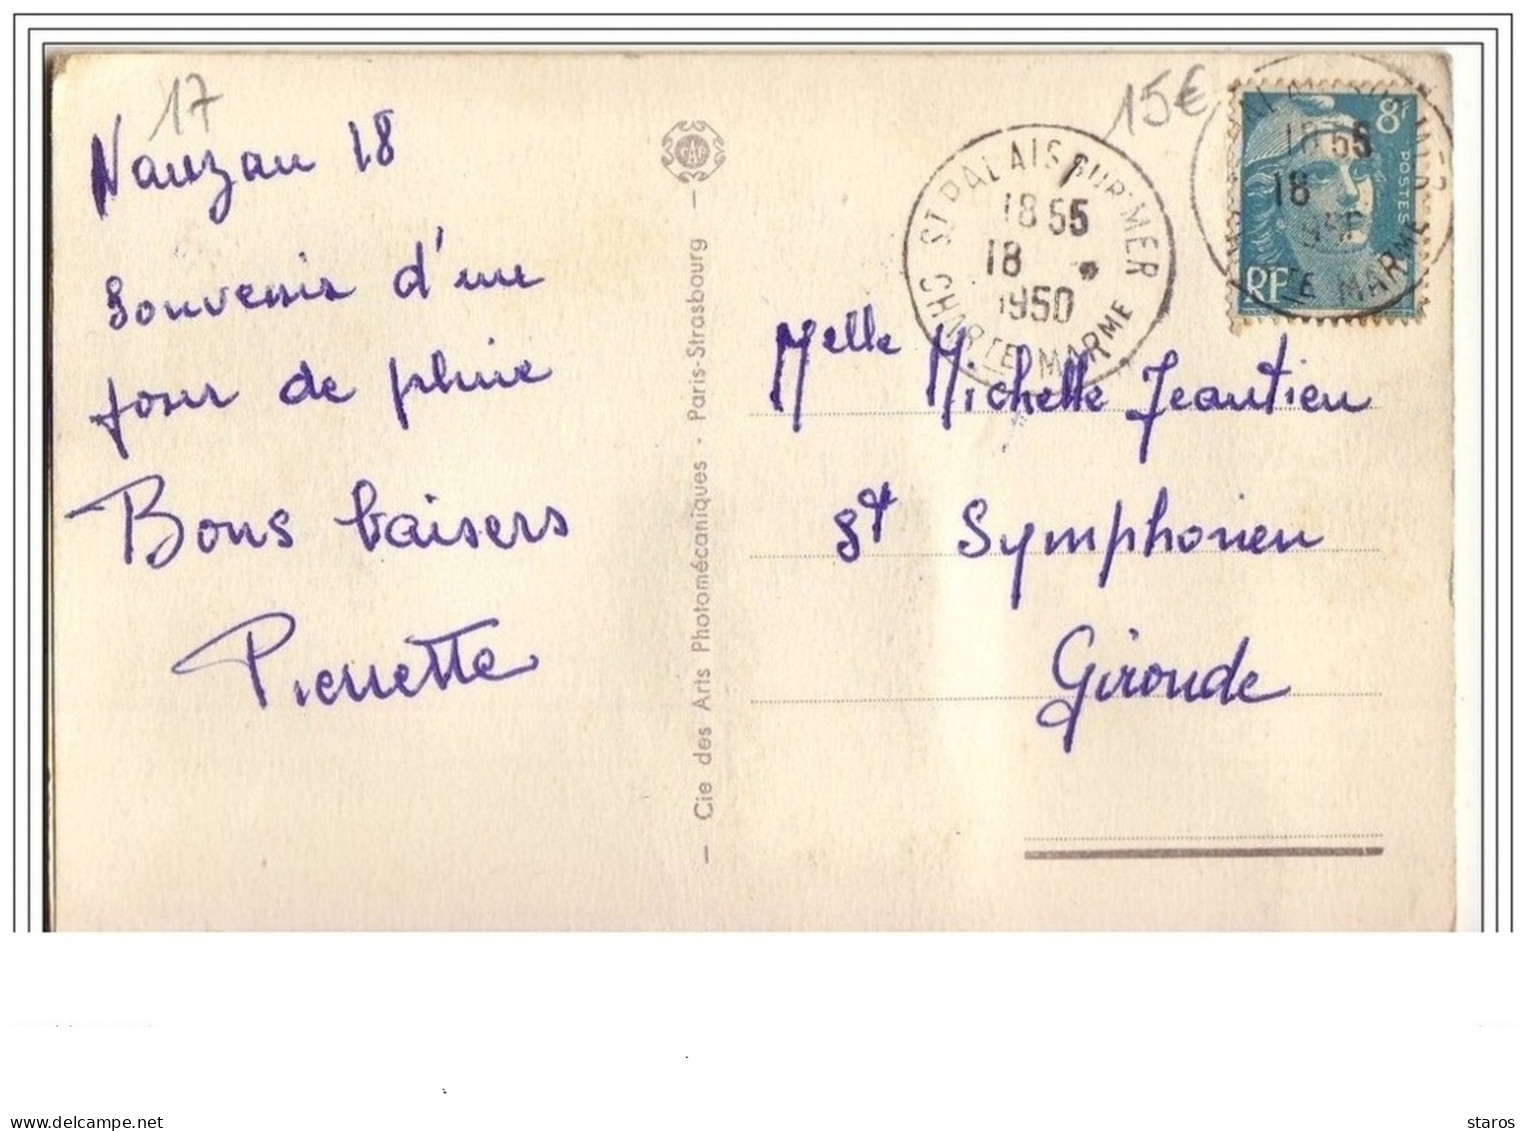 17
15€
Nauzan 18
Souvenir d'un
jour de pluie
Bons baisers
Pierrette
Cie des Arts Photomécaniques - Paris-Strasbourg
CAP
ST PALAIS SUR MER
18 55
18
1950
CHARTE MARME
8F
POSTES
RF
18 55
18
TE MARME
Melle Michelle Jeantien
St Symphorien
Gironde
staros
delcampe.net